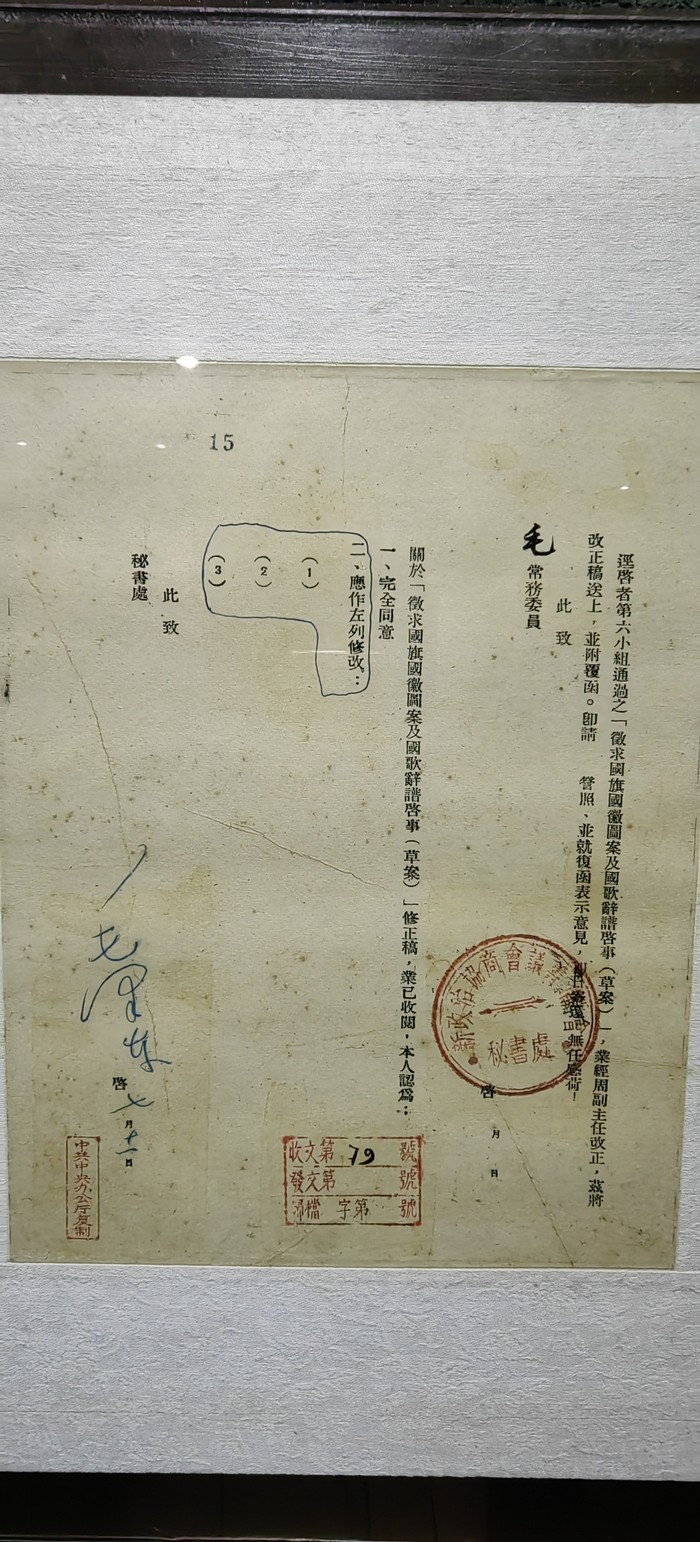 15
逕啓者第六小組通過之「徵求國旗國徽圖案及國歌辭譜啓事(草案)」,業經周副主任改正,茲將
改正稿送上,並附覆函。卽請 詧照、並就復函表示意見,卽日擲還,無任感荷!
此致
毛常務委員
新政治協商會議籌備會
秘書處
啓 月 日
關於「徵求國旗國徽圖案及國歌辭譜啓事(草案)」修正稿,業已收閱,本人認爲:
一、完全同意
二、應作左列修改:
(1)
(2)
(3)
此致
秘書處
毛澤東 啓 七月十一日
收文第79號
發文第 號
歸檔 字第 號
中共中央办公厅复制